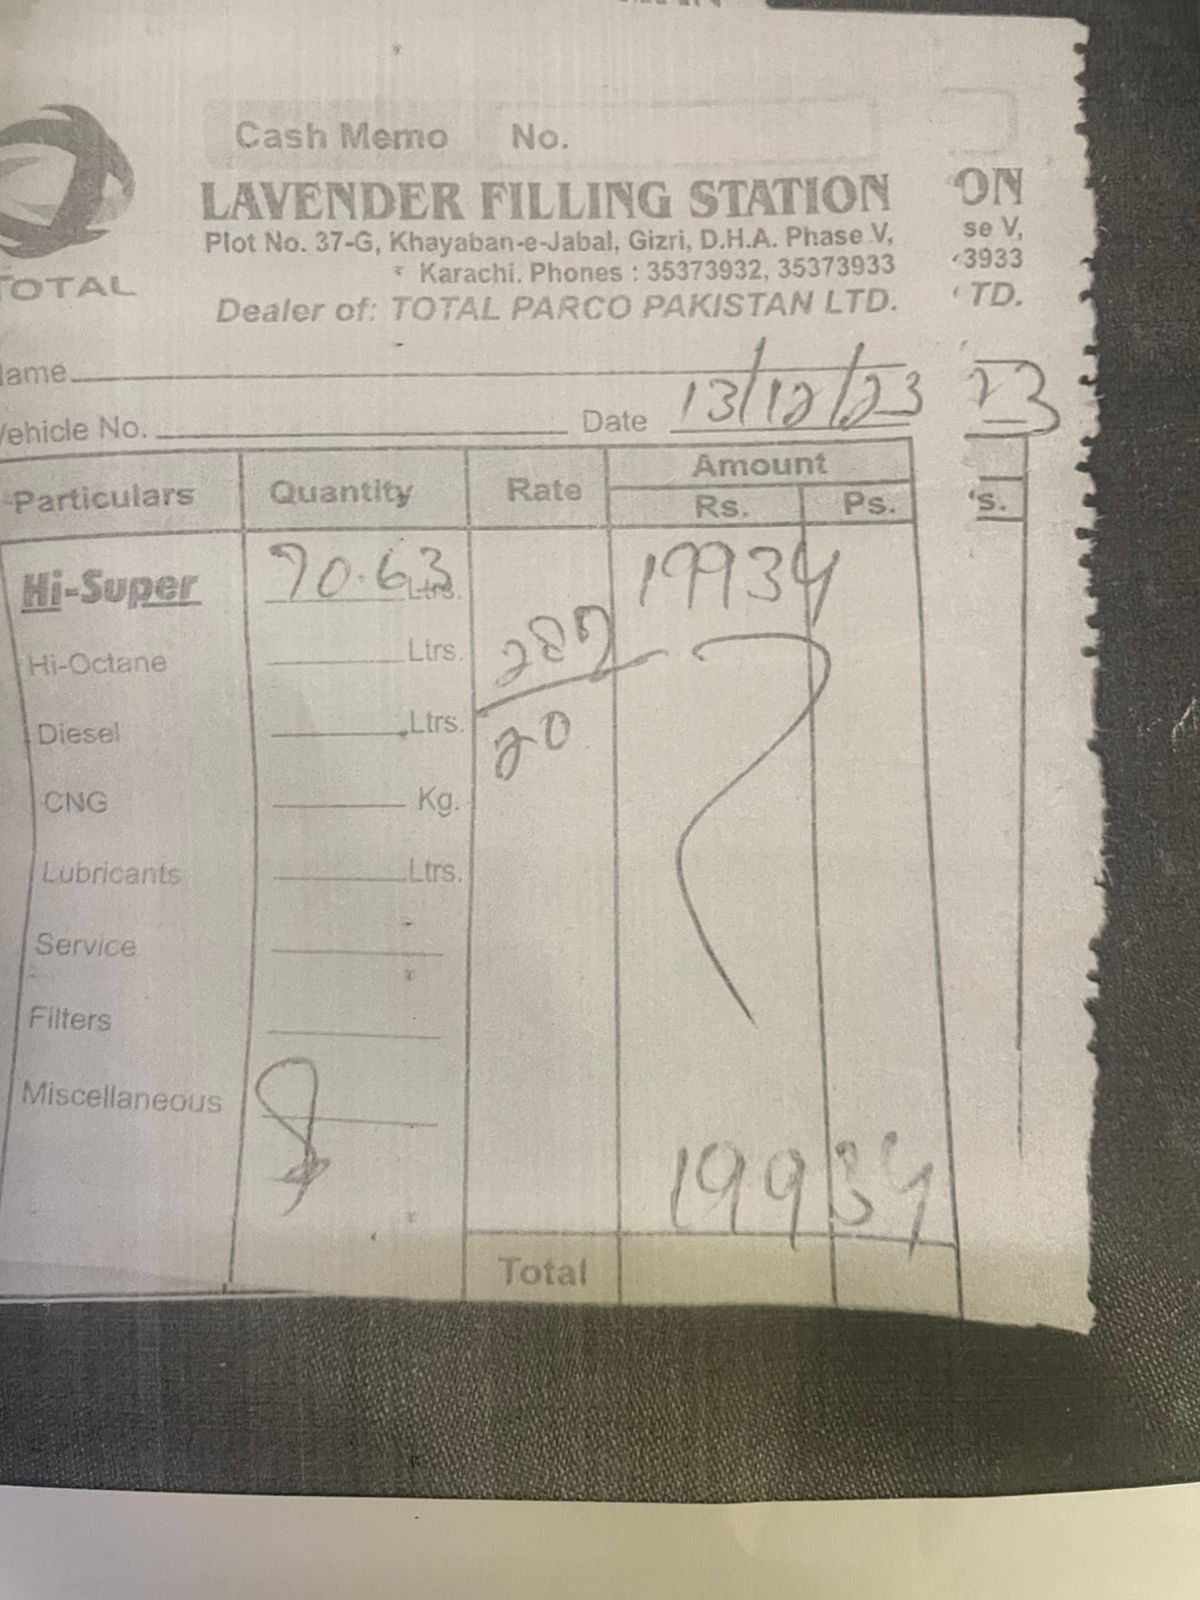 Cash Memo No.
LAVENDER FILLING STATION ON
Plot No. 37-G, Khayaban-e-Jabal, Gizri, D.H.A. Phase V, se V,
Karachi. Phones : 35373932, 35373933 3933
TOTAL
Dealer of: TOTAL PARCO PAKISTAN LTD. TD.
ame
Vehicle No. Date 13/12/23 23
Particulars Quantity Rate Amount
Rs. Ps. s.
Hi-Super 70.63 Ltrs. 19934
Hi-Octane Ltrs. 282
Diesel Ltrs. 20
CNG Kg.
Lubricants Ltrs.
Service
Filters
Miscellaneous
19934
Total